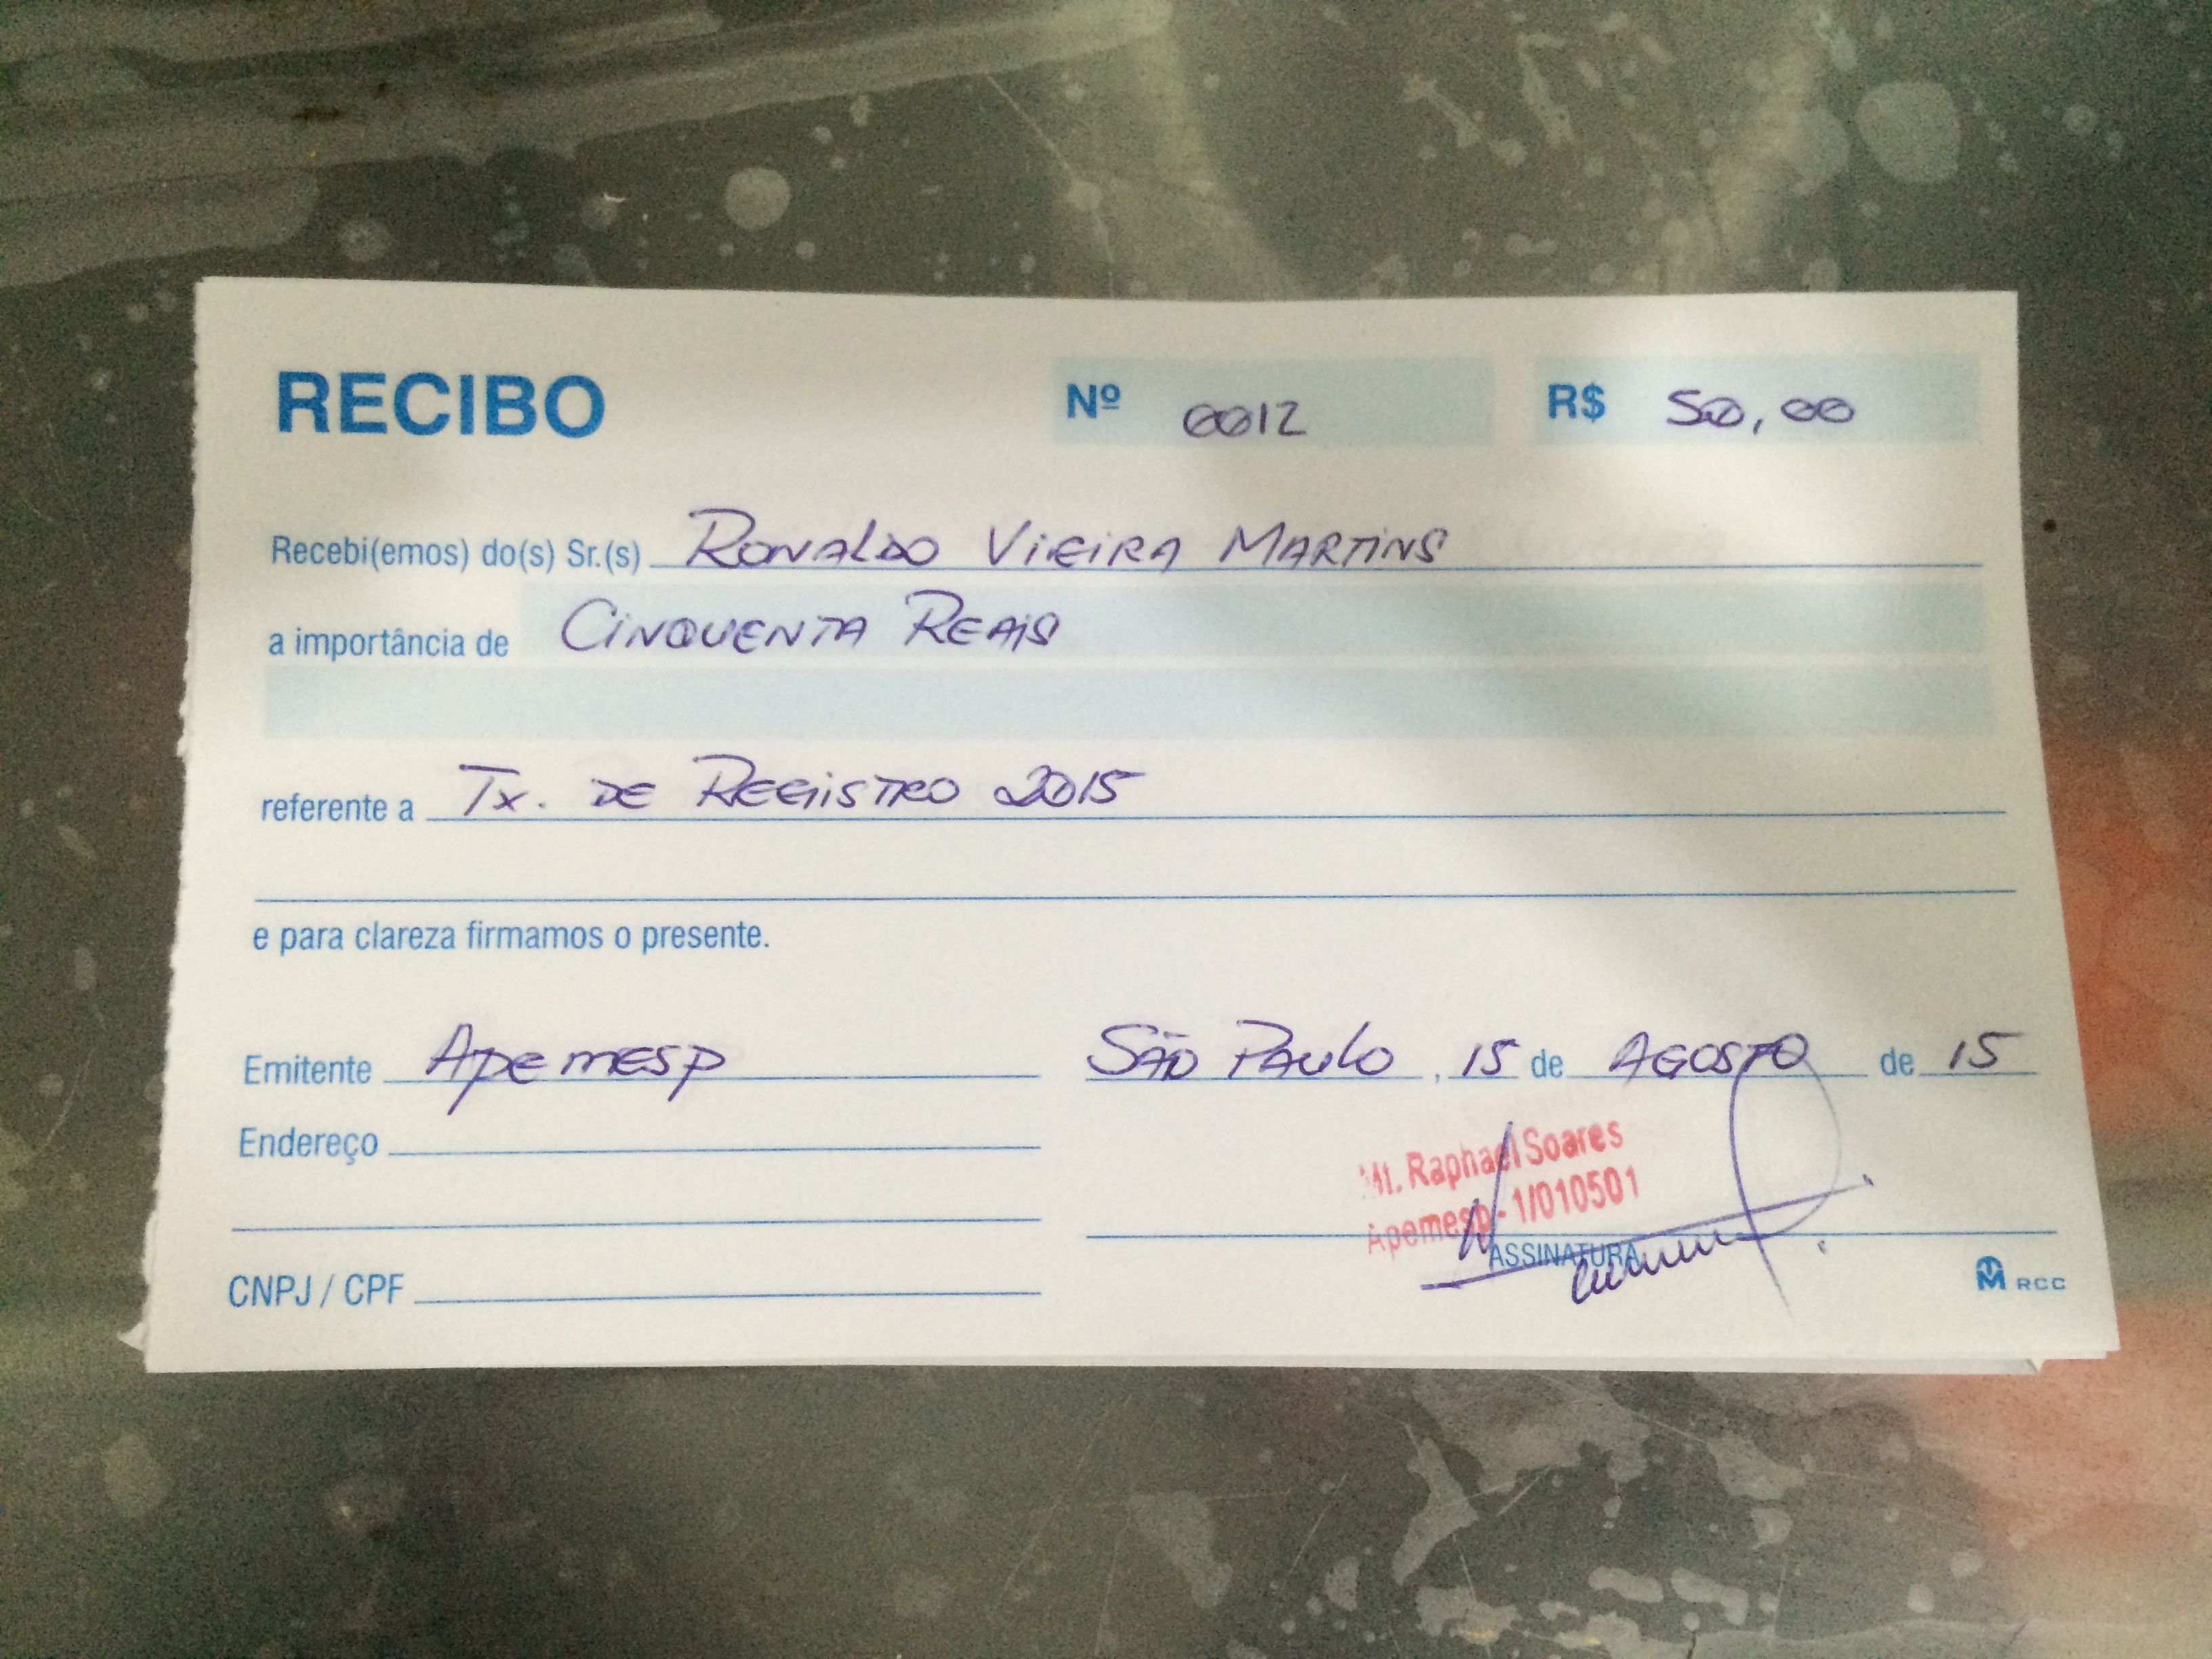 RECIBO Nº 0012 R$ 50,00
Recebi(emos) do(s) Sr.(s) Ronaldo Vieira Martins
a importância de Cinquenta Reais
referente a Tx. de Registro 2015
e para clareza firmamos o presente.
Emitente Apemesp São Paulo, 15 de Agosto de 15
Endereço
Mt. Raphael Soares
Apemesp - 1/010501
ASSINATURA
CNPJ / CPF
RCC